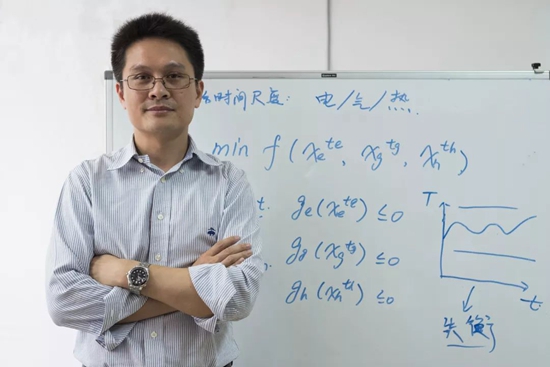 时间尺度: 电/气/热
min f(x_e^{te}, x_g^{tg}, x_h^{th})
t: g_e(x_e^{te}) ≤ 0
g_g(x_g^{tg}) ≤ 0
g_h(x_h^{th}) ≤ 0
T
t
失衡